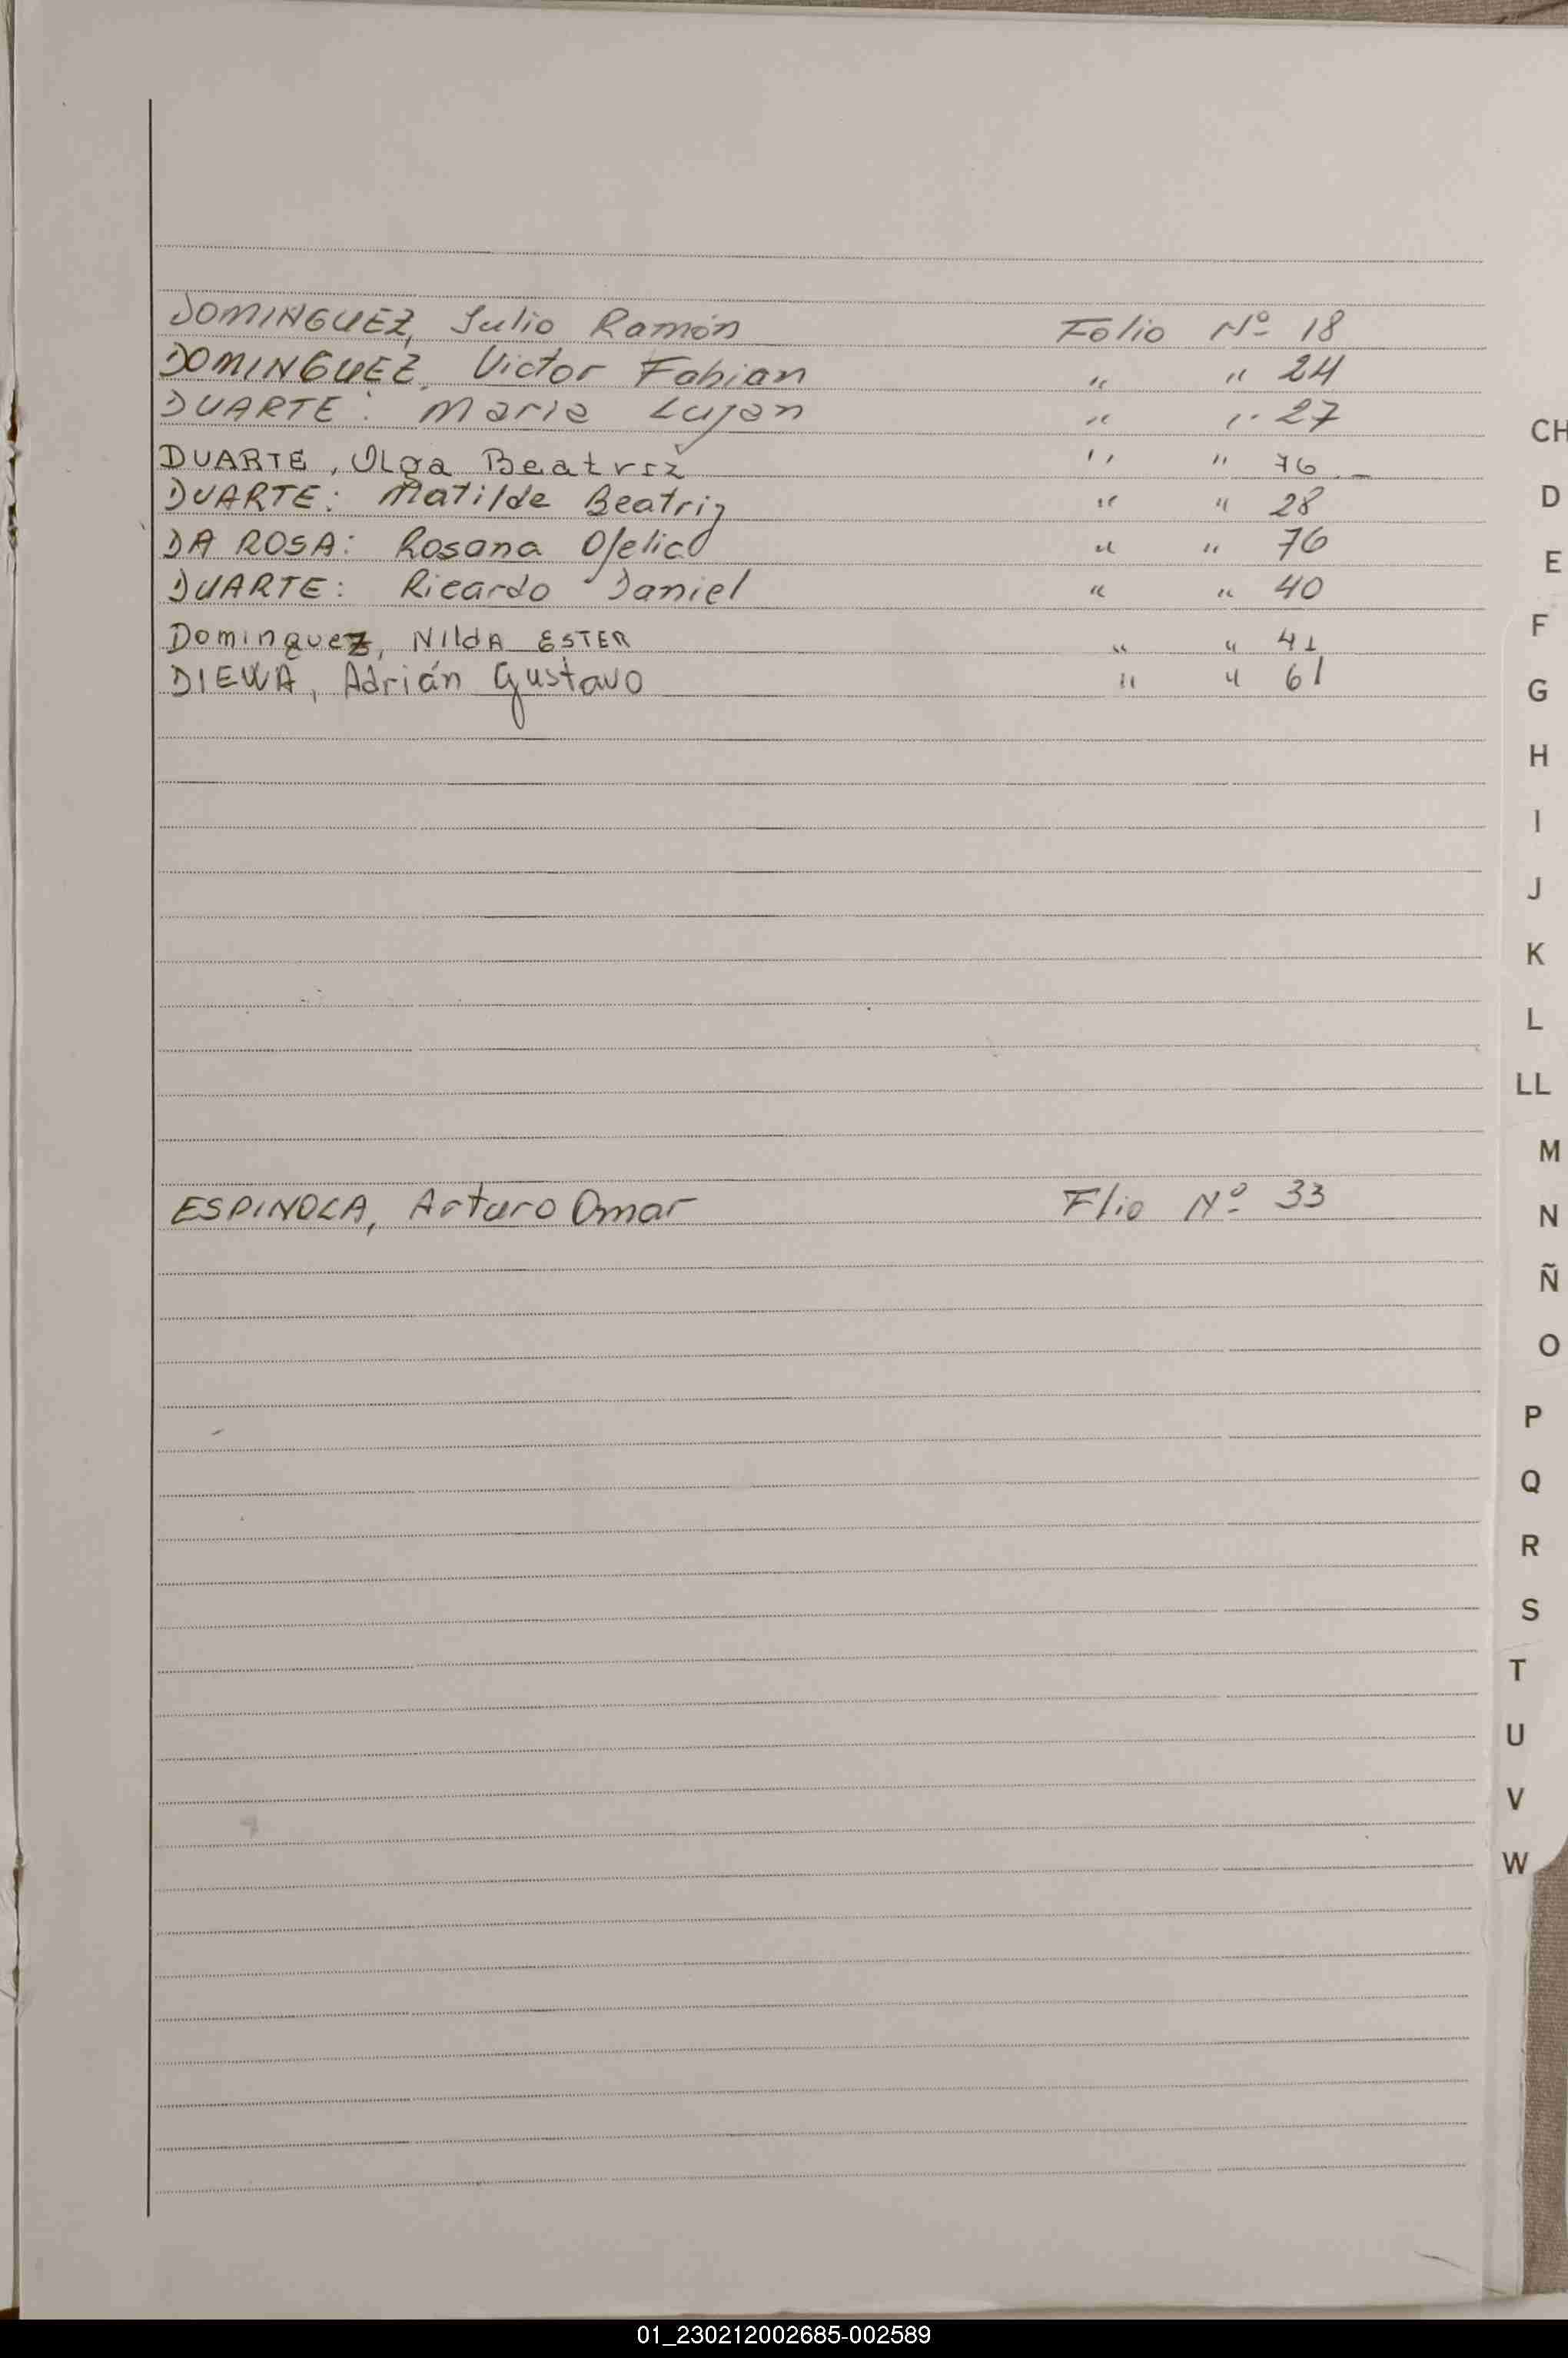 DOMINGUEZ, Julio Ramón Folio Nº 18
DOMINGUEZ, Victor Fabian " " 24
DUARTE: Maria Lujan " " 27
DUARTE, Olga Beatriz " " 76
DUARTE: Matilde Beatriz " " 28
DA ROSA: Rosana Ofelia " " 76
DUARTE: Ricardo Daniel " " 40
Dominguez, NIldA ESTER " " 41
DIEWA, Adrián Gustavo " " 61
ESPINOLA, Arturo Omar Flio Nº 33
CH
D
E
F
G
H
I
J
K
L
LL
M
N
Ñ
O
P
Q
R
S
T
U
V
W
01_230212002685-002589